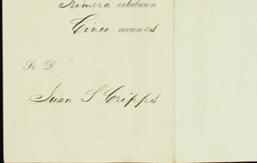 Primera exhibición
Cinco acciones
Sr. D.
Juan S Cripps